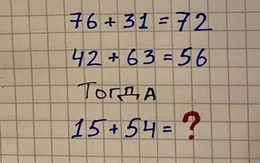 76 + 31 = 72
42 + 63 = 56
Тогда
15 + 54 = ?